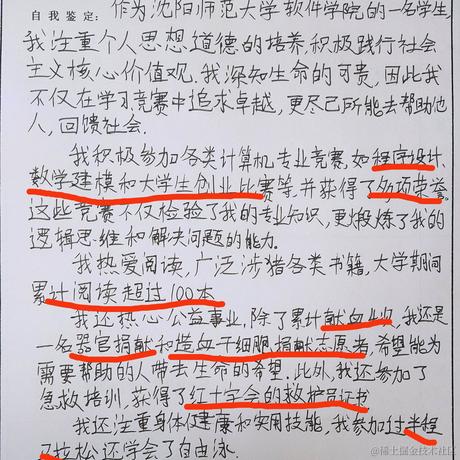 自我鉴定:作为沈阳师范大学软件学院的一名学生,
我注重个人思想道德的培养,积极践行社会
主义核心价值观。我深知生命的可贵,因此我
不仅在学习竞赛中追求卓越,更尽己所能去帮助他
人,回馈社会.
我积极参加各类计算机专业竞赛,如程序设计、
数学建模和大学生创业比赛等,并获得了多项荣誉。
这些竞赛不仅检验了我的专业知识,更煅炼了我的
逻辑思维和解决问题的能力。
我热爱阅读,广泛涉猎各类书籍,大学期间
累计阅读超过100本
我还热心公益事业,除了累计献血,我还是
一名器官捐献和造血干细胞捐献志愿者,希望能为
需要帮助的人带去生命的希望。此外,我还参加了
急救培训,获得了红十字会的救护员证书
我还注重身体健康和实用技能,我参加过半程
马拉松还学会了自由泳
@稀土掘金技术社区